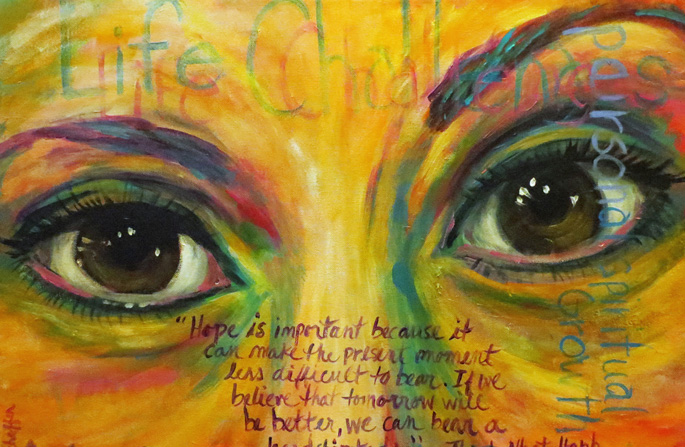 Life Challenges
personal spiritual
Growth
"Hope is important because it
can make the present moment
less difficult to bear. If we
believe that tomorrow will
be better, we can bear a
hardship today."